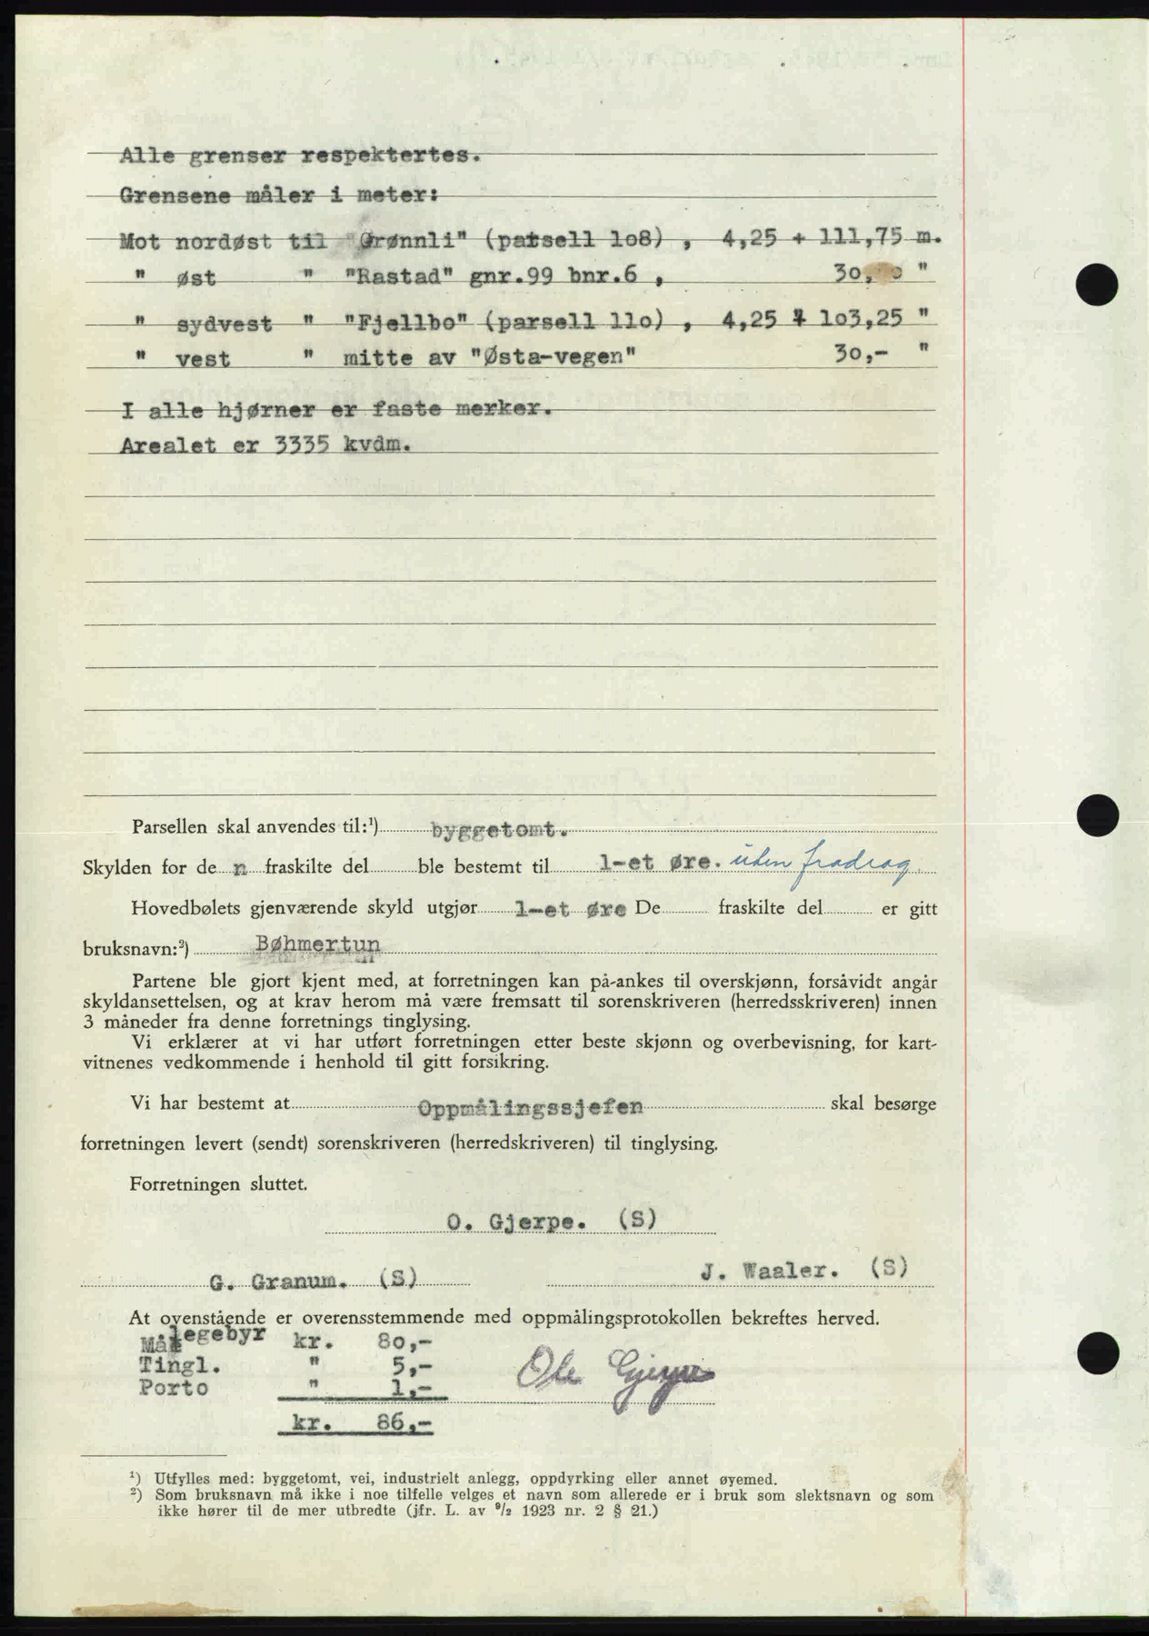 Alle grenser respektertes.
Grensene måler i meter:
Mot nordøst til "Grønnli" (parsell 108) , 4,25 + 111,75 m.
" øst " "Rastad" gnr.99 bnr.6 , 30, "
" sydvest " "Fjellbo" (parsell 110) , 4,25 + 103,25 "
" vest " mitte av "Østa-vegen" 30,- "
I alle hjørner er faste merker.
Arealet er 3335 kvdm.
Parsellen skal anvendes til:¹) byggetomt.
Skylden for de n fraskilte del ble bestemt til 1-et øre. uten fradrag.
Hovedbølets gjenværende skyld utgjør 1-et øre De fraskilte del er gitt
bruksnavn:²) Bøhmertun
Partene ble gjort kjent med, at forretningen kan på-ankes til overskjønn, forsåvidt angår
skyldansettelsen, og at krav herom må være fremsatt til sorenskriveren (herredsskriveren) innen
3 måneder fra denne forretnings tinglysing.
Vi erklærer at vi har utført forretningen etter beste skjønn og overbevisning, for kart-
vitnenes vedkommende i henhold til gitt forsikring.
Vi har bestemt at Oppmålingssjefen skal besørge
forretningen levert (sendt) sorenskriveren (herredskriveren) til tinglysing.
Forretningen sluttet.
O. Gjerpe. (S)
G. Granum. (S) J. Waaler. (S)
At ovenstående er overensstemmende med oppmålingsprotokollen bekreftes herved.
Målegebyr kr. 80,-
Tingl. " 5,-
Porto " 1,-
Ole Gjerpe
kr. 86,-
¹) Utfylles med: byggetomt, vei, industrielt anlegg, oppdyrking eller annet øyemed.
²) Som bruksnavn må ikke i noe tilfelle velges et navn som allerede er i bruk som slektsnavn og som
ikke hører til de mer utbredte (jfr. L. av ⁹/₂ 1923 nr. 2 § 21.)